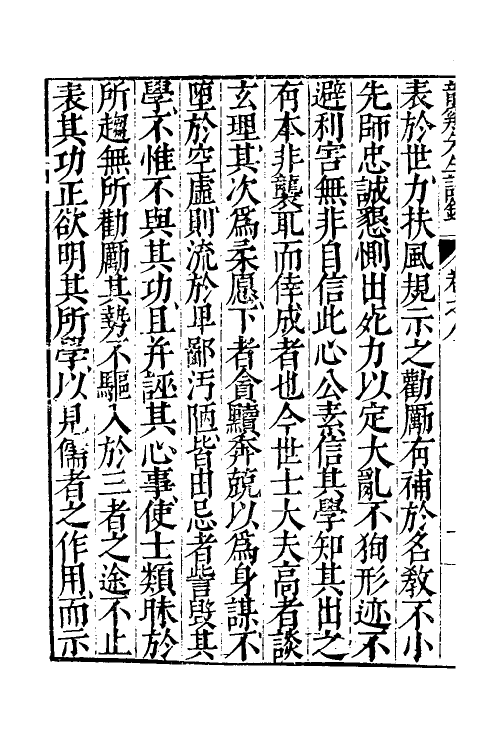 龍谿先生語錄 卷之八
表於世力扶風規示之勸厲有補於名教不小
先師忠誠懇惻出死力以定大亂不狥形迹不
避利害無非自信此心公素信其學知其出之
有本非襲取而倖成者也今世士大夫高者談
玄理其次為柔愿下者貪黷奔競以為身謀不
墮於空虛則流於卑鄙汚陋皆由忌者訾毀其
學不惟不與其功且并誣其心事使士類眛於
所趨無所勸厲其勢不驅入於三者之途不止
表其功正欲明其所學以見儒者之作用而示